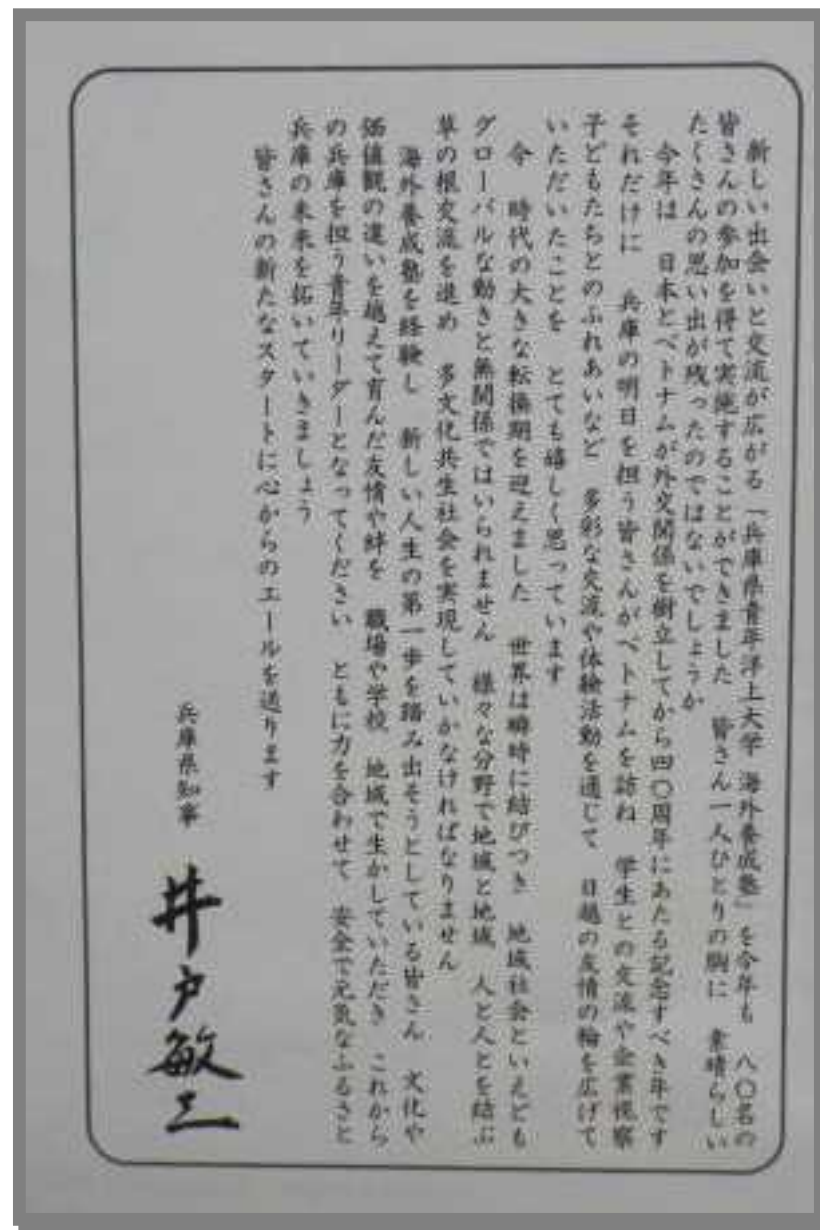 新しい出会いと交流が広がる「兵庫県青年洋上大学 海外養成塾」を今年も 八〇名の
皆さんの参加を得て実施することができました 皆さん一人ひとりの胸に 素晴らしい
たくさんの思い出が残ったのではないでしょうか
今年は 日本とベトナムが外交関係を樹立してから四〇周年にあたる記念すべき年です
それだけに 兵庫の明日を担う皆さんがベトナムを訪ね 学生との交流や企業視察
子どもたちとのふれあいなど 多彩な交流や体験活動を通じて 日越の友情の輪を広げて
いただいたことを とても嬉しく思っています
今 時代の大きな転換期を迎えました 世界は瞬時に結びつき 地域社会といえども
グローバルな動きと無関係ではいられません 様々な分野で地域と地域 人と人とを結ぶ
草の根交流を進め 多文化共生社会を実現していかなければなりません
海外養成塾を経験し 新しい人生の第一歩を踏み出そうとしている皆さん 文化や
価値観の違いを越えて育んだ友情や絆を 職場や学校 地域で生かしていただき これから
の兵庫を担う青年リーダーとなってください ともに力を合わせて 安全で元気なふるさと
兵庫の未来を拓いていきましょう
皆さんの新たなスタートに心からのエールを送ります
兵庫県知事 井戸敏三